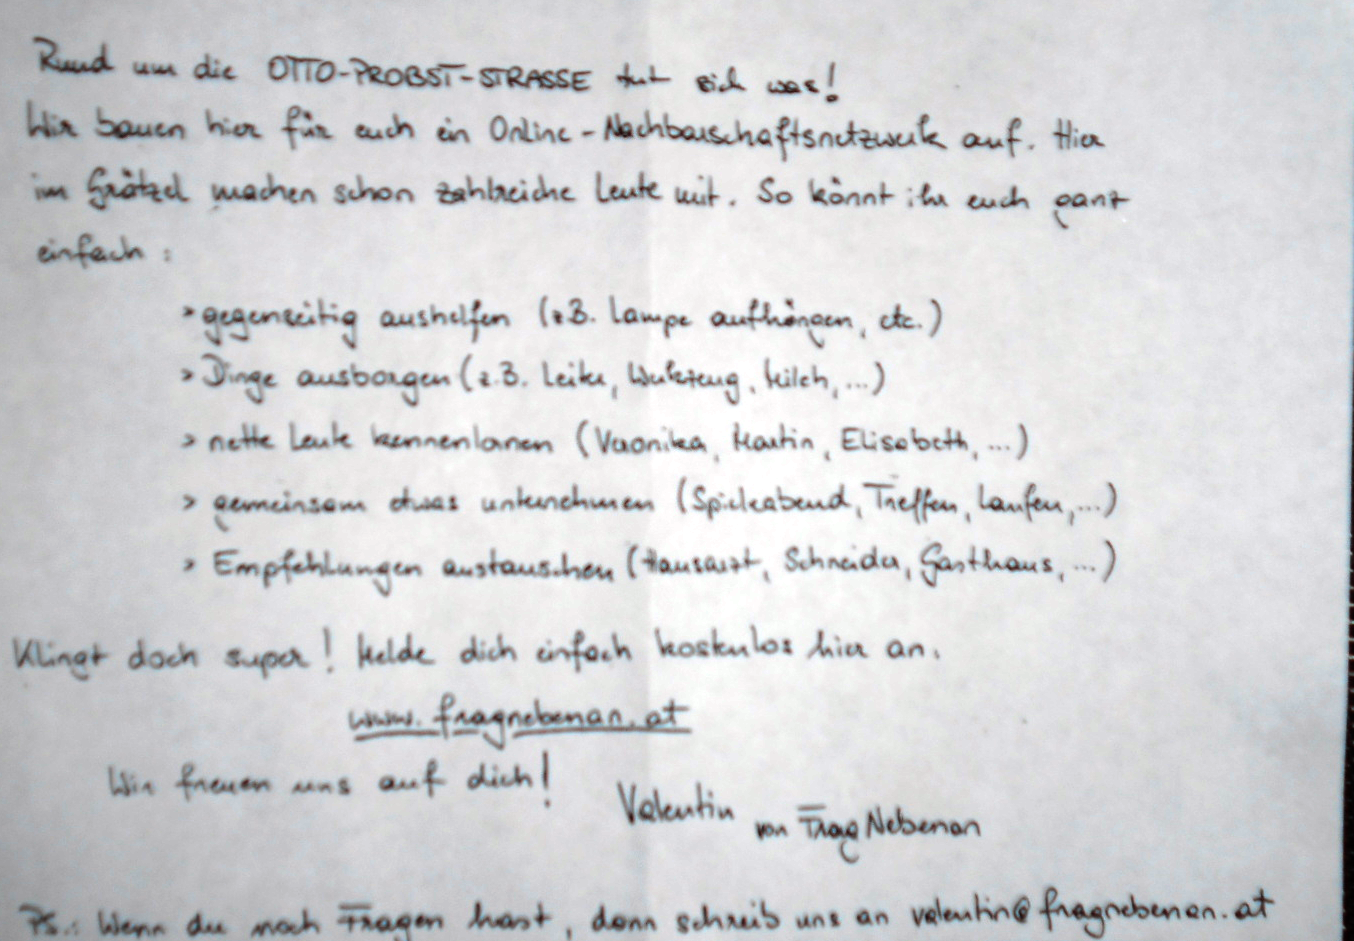 Rund um die OTTO-PROBST-STRASSE tut sich was!
Wir bauen hier für euch ein Online-Nachbarschaftsnetzwerk auf. Hier
im Grätzel machen schon zahlreiche Leute mit. So könnt ihr euch ganz
einfach:
> gegenseitig aushelfen (z.B. Lampe aufhängen, etc.)
> Dinge ausborgen (z.B. Leiter, Werkzeug, Milch, ...)
> nette Leute kennenlernen (Veronika, Martin, Elisabeth, ...)
> gemeinsam etwas unternehmen (Spieleabend, Treffen, Laufen, ...)
> Empfehlungen austauschen (Hausarzt, Schneider, Gasthaus, ...)
Klingt doch super! Melde dich einfach kostenlos hier an.
www.fragnebenan.at
Wir freuen uns auf dich!
Valentin von FragNebenan
Ps.: Wenn du noch Fragen hast, dann schreib uns an valentin@fragnebenan.at